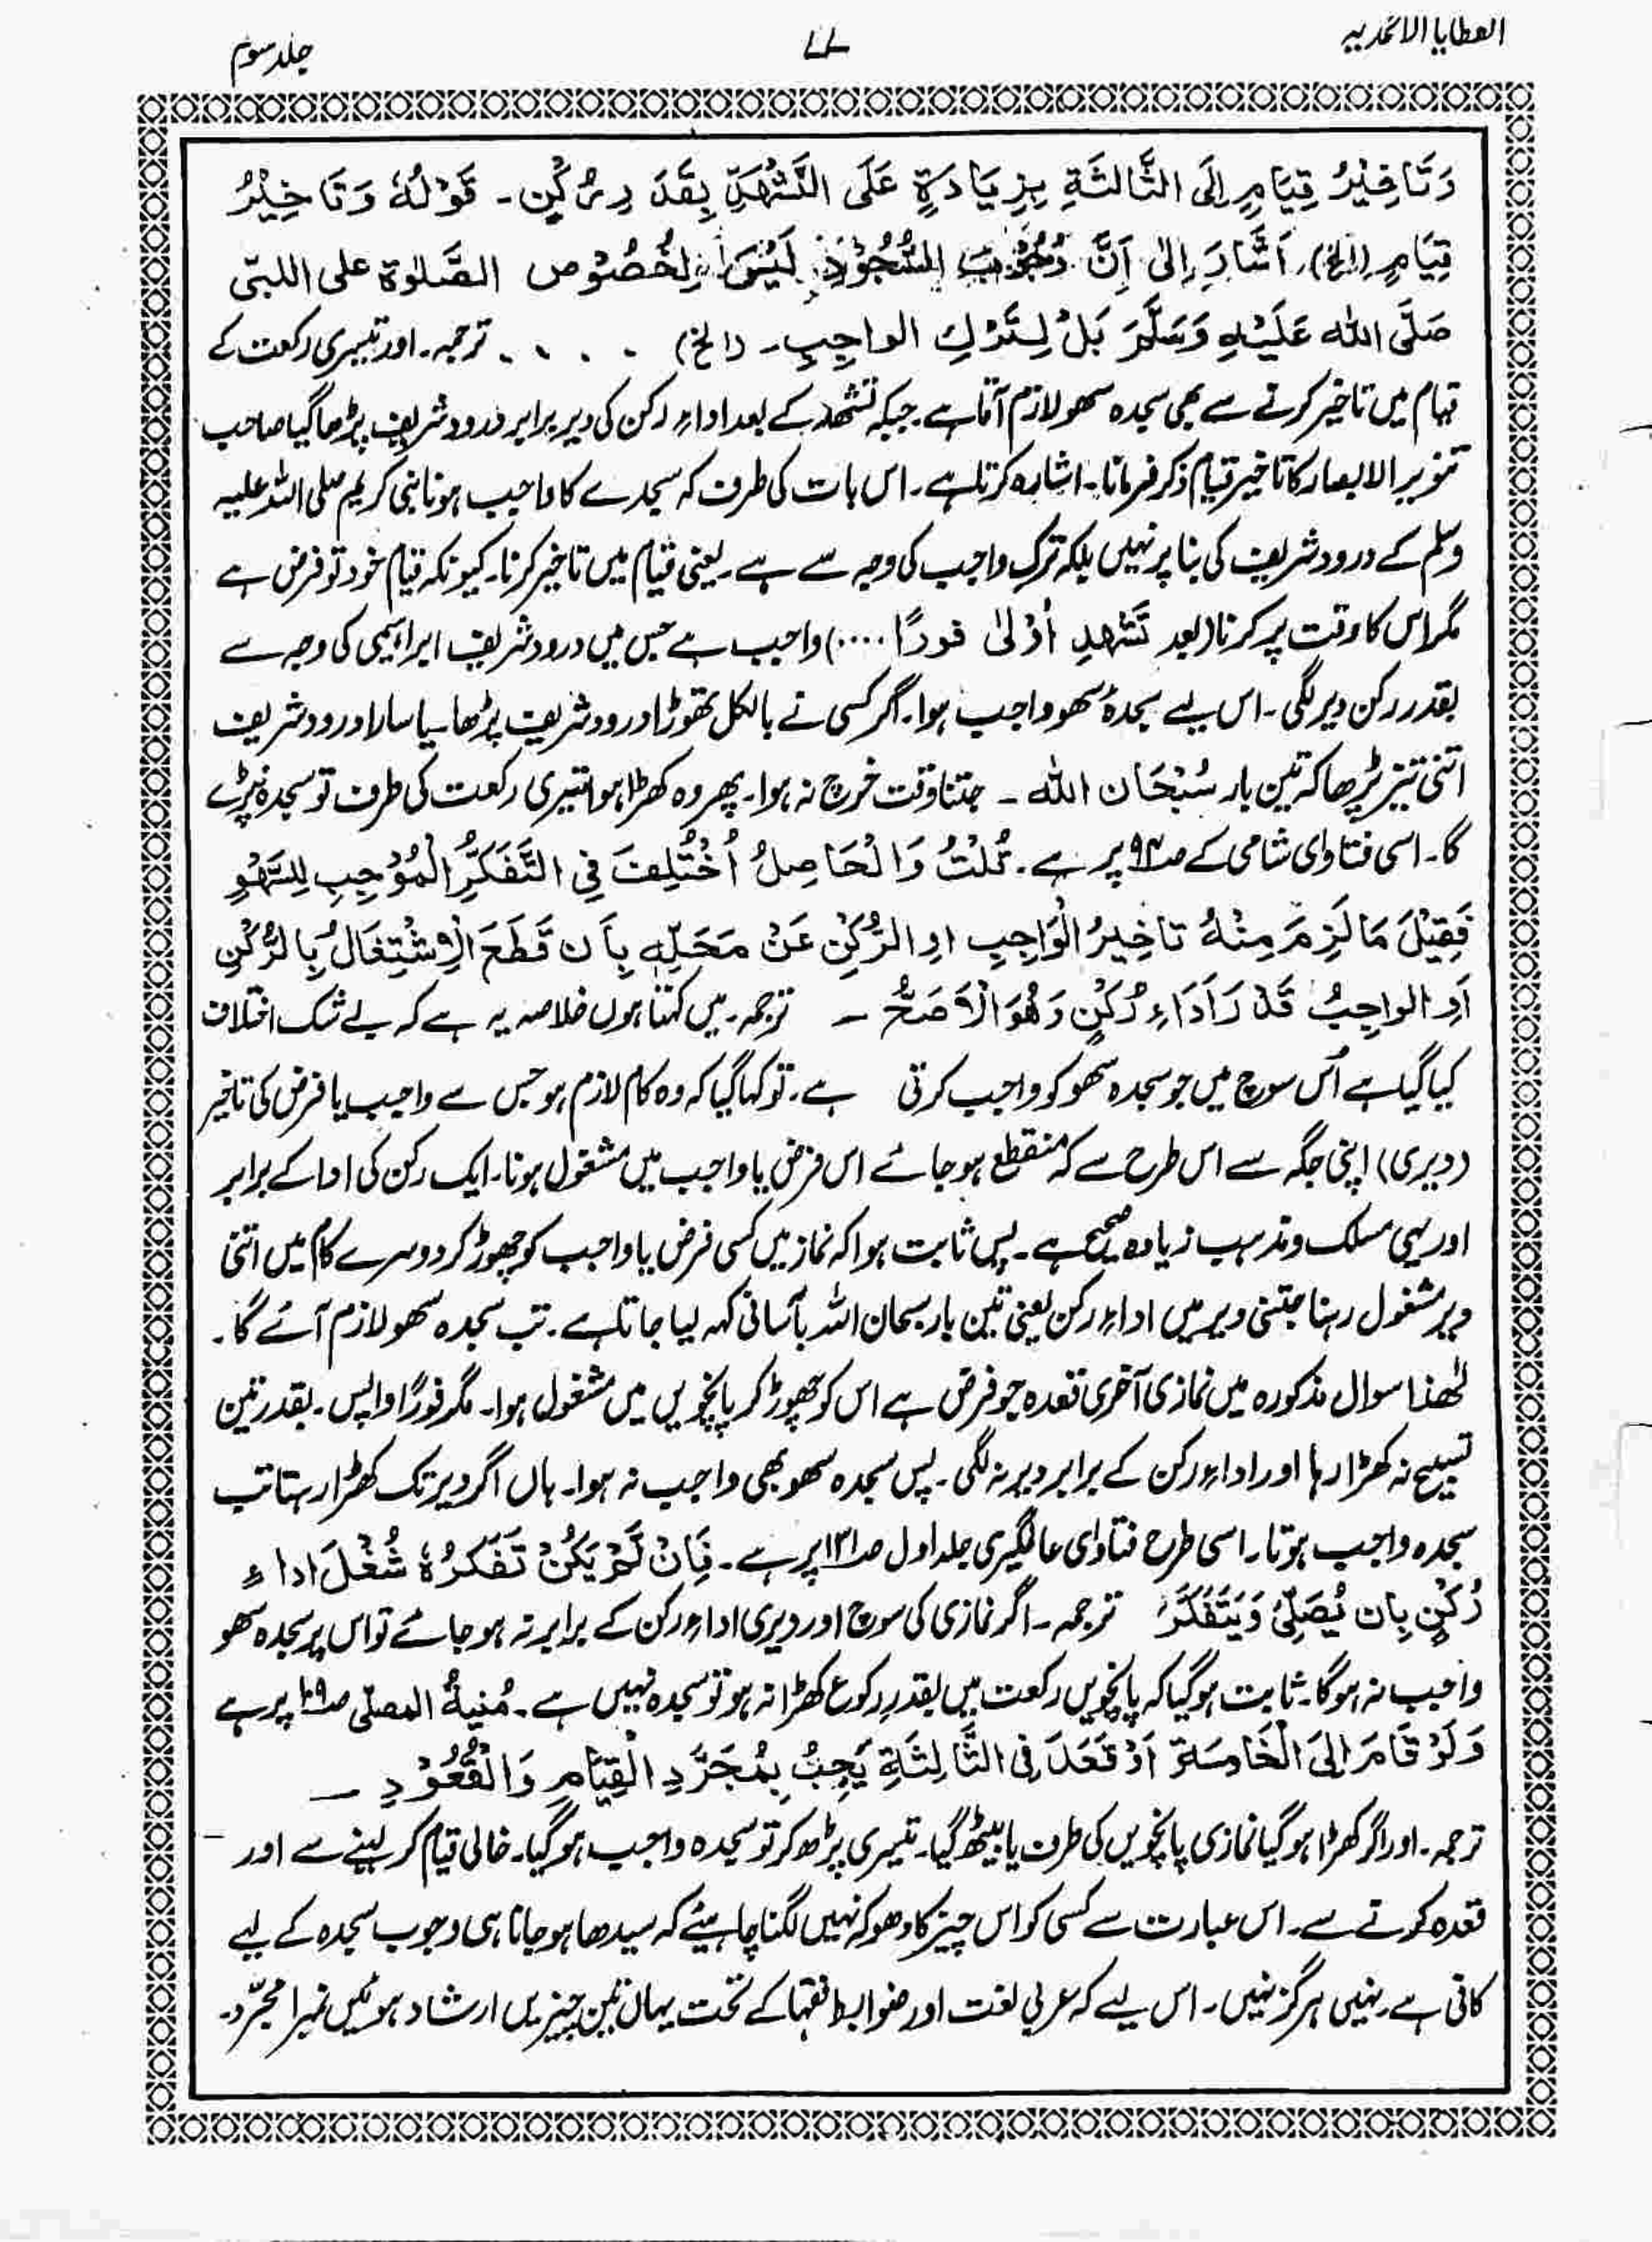 العطایا الاحمدیہ
۷۷
جلد سوم
وَتَاخِيْرُ قِيَامٍ اِلَى الثَّالثَةِ بِزِيَادَةٍ عَلَى التَّشَهُّدِ بِقَدَ رِ رُكْنٍ ۔ قَوْلُهُ وَتَاخِيْرُ
قِيَامٍ (الخ) اَشَارَ اِلىٰ اَنَّ وُجُوْبَ السُّجُوْدِ لَيْسَ لِخُصُوْصِ الصَّلوٰة على النبى
صَلَّى اللّٰه عَلَيْهِ وَسَلَّمَ بَلْ لِتَرْكِ الواجِبِ ۔ (الخ) . . . . ترجمہ۔ اور تیسری رکعت کے
قیام میں تاخیر کرنے سے بھی سجدہ سھو لازم آتا ہے۔ جبکہ تشھد کے بعد اداءِ رکن کی دیر برابر درود شریف پڑھا گیا صاحب
تنویر الابصار کا تاخیر قیام ذکر فرمانا۔ اشارہ کرتا ہے۔ اس بات کی طرف کہ سجدے کا واجب ہونا نبی کریم صلی اللہ علیہ
وسلم کے درود شریف کی بنا پر نہیں بلکہ ترکِ واجب کی وجہ سے ہے۔ یعنی قیام میں تاخیر کرنا۔ کیونکہ قیام خود تو فرض ہے
مگر اس کا وقت پر کرنا (بعد تَشَهدِ اُوْلىٰ فورًا ....) واجب ہے جس میں درود شریف ابراہیمی کی وجہ سے
بقدر رکن دیر لگی۔ اس لیے سجدۂ سھو واجب ہوا۔ اگر کسی نے بالکل تھوڑا درود شریف پڑھا۔ یا سارا درود شریف
اتنی تیز پڑھا کہ تین بار سُبْحَان اللّٰه ۔ جتنا وقت خرچ نہ ہوا۔ پھر وہ کھڑا ہوا تیسری رکعت کی طرف تو سجدہ نہ پڑے
گا۔ اسی فتاوای شامی کے صـ۶۹۴ پر ہے۔ قُلْتُ وَالْحَاصِلُ اُخْتُلِفَ فِي التَّفَكُّرِ الْمُوْجِبِ لِلسَّهْوِ
فَقِيْلَ مَا لَزِمَ مِنْهُ تاخِيرُ الْوَاجِبِ اوِ الرُّكْنِ عَنْ مَحَلِّهٖ بِاَن قَطَعَ الْاِشْتِغَالُ بِالرُّكْنِ
اَوِ الواجِبُ قَدْ رَ اَدَاءِ رُكْنٍ وَهُوَ الْاَصَحُّ ۔ ترجمہ۔ میں کہتا ہوں خلاصہ یہ ہے کہ بے شک اختلاف
کیا گیا ہے اُس سوچ میں جو سجدہ سھو کو واجب کرتی ہے۔ تو کہا گیا کہ وہ کام لازم ہو جس سے واجب یا فرض کی تاخیر
(دیری) اپنی جگہ سے اس طرح سے کہ منقطع ہو جائے اس فرض یا واجب میں مشغول ہونا۔ ایک رکن کی ادا کے برابر
اور یہی مسلک و مذہب زیادہ صحیح ہے۔ پس ثابت ہوا کہ نماز میں کسی فرض یا واجب کو چھوڑ کر دوسرے کام میں اتنی
دیر مشغول رہنا جتنی دیر میں اداءِ رکن یعنی تین بار سبحان اللہ بآسانی کہہ لیا جاتا ہے۔ تب سجدہ سھو لازم آئے گا۔
لھٰذا سوال مذکورہ میں نمازی آخری قعدہ جو فرض ہے اس کو چھوڑ کر پانچویں میں مشغول ہوا۔ مگر فورًا واپس۔ بقدر تین
تسبیح نہ کھڑا رہا اور اداءِ رکن کے برابر دیر نہ لگی۔ پس سجدہ سھو بھی واجب نہ ہوا۔ ہاں اگر دیر تک کھڑا رہتا تب
سجدہ واجب ہوتا۔ اسی طرح فتاوٰی عالمگیری جلد اول صـ۱۳۱ پر ہے۔ فَاِنْ لَّمْ يَكُنْ تَفَكُرُهٗ شُغْلَ اداءِ
رُكْنٍ بِان يُصَلِّىَ وَيَتَفَكَّرَ ترجمہ۔ اگر نمازی کی سوچ اور دیری اداءِ رکن کے برابر نہ ہو جائے تو اس پر سجدہ سھو
واجب نہ ہوگا۔ ثابت ہوگیا کہ پانچویں رکعت میں بقدرِ رکوع کھڑا نہ ہو تو سجدہ نہیں ہے۔ مُنیةُ المصلّی پر ہے
وَلَوْ قَامَ اِلىَ الْخَامِسَةِ اَوْ قَعَدَ فِى الثَّالِثَةِ يَجِبُ بِمُجَرَّدِ الْقِيَامِ وَالْقُعُوْدِ ۔
ترجمہ۔ اور اگر کھڑا ہوگیا نمازی پانچویں کی طرف یا بیٹھ گیا۔ تیسری پڑھ کر تو سجدہ واجب ہوگیا۔ خالی قیام کر لینے سے اور
قعدہ کرنے سے۔ اس عبارت سے کسی کو اس چیز کا دھوکہ نہیں لگنا چاہیئے کہ سیدھا ہو جانا ہی وجوب سجدہ کے لیے
کافی ہے۔ نہیں ہرگز نہیں۔ اس لیے کہ عربی لغت اور ضوابط فقہا کے تحت یہاں تین چیزیں ارشاد ہوئیں نمبر۱ مجرّد۔